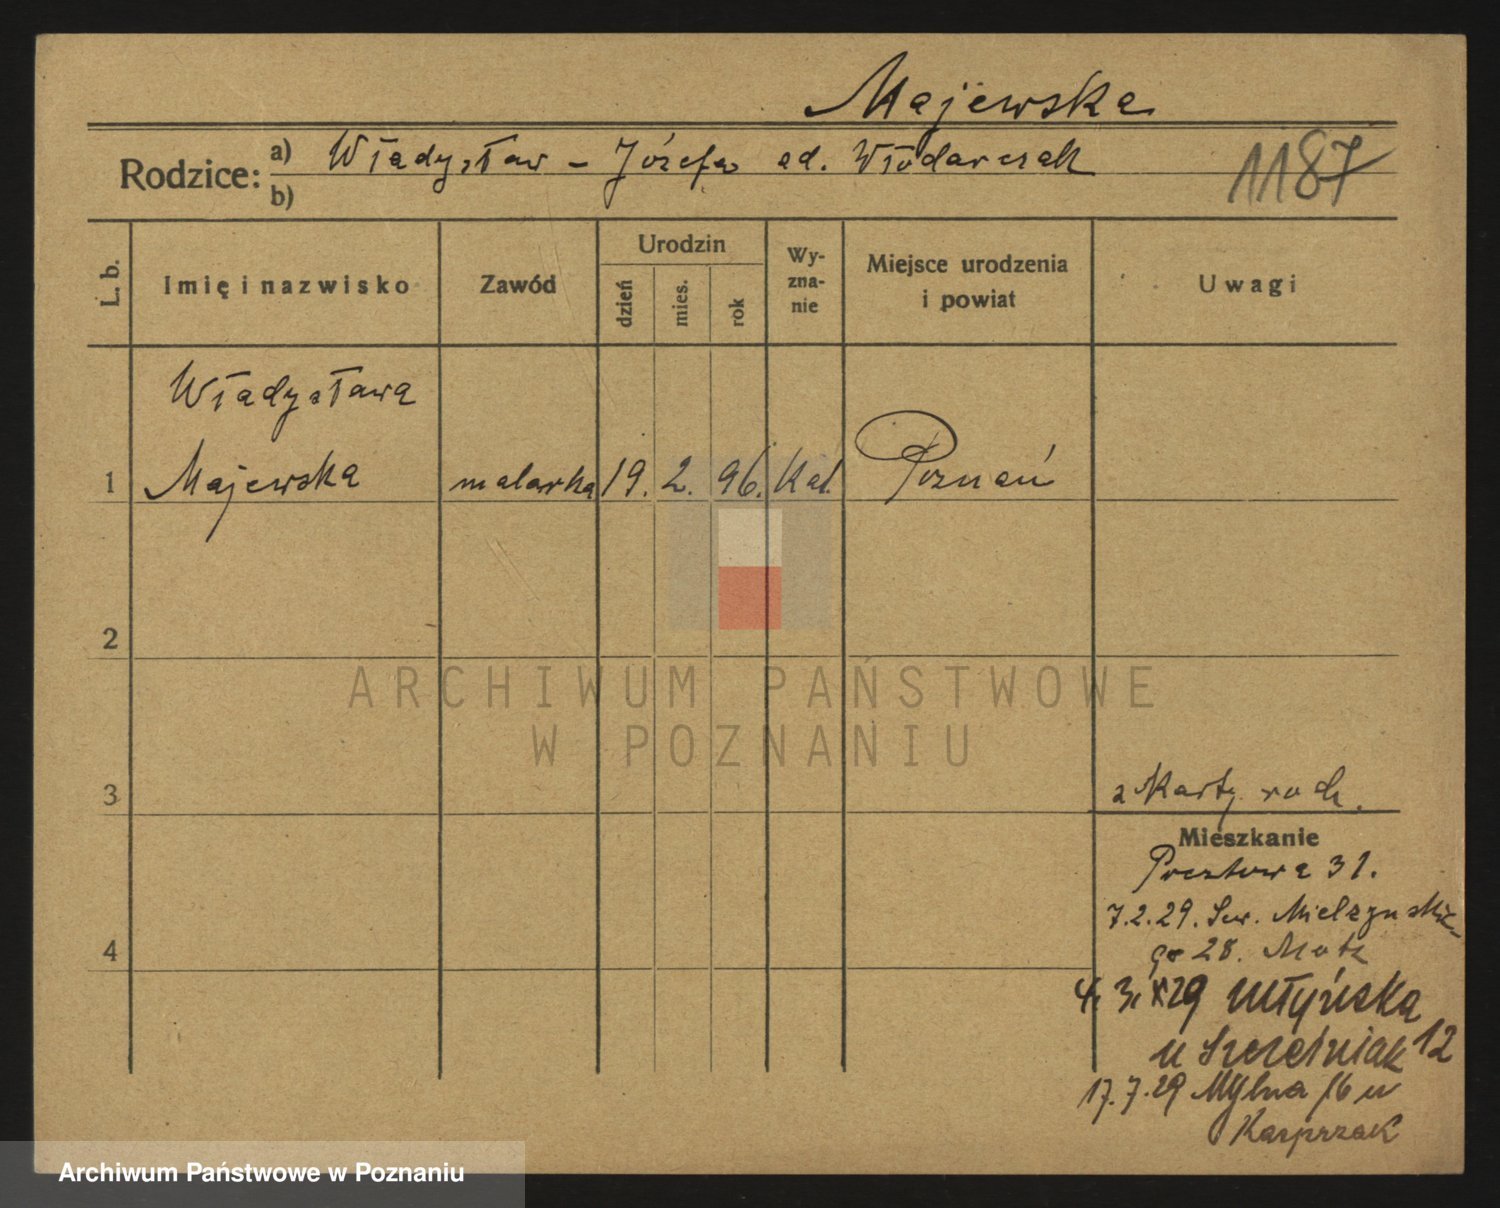 Majewska
Rodzice: a) Władysław – Józefa od. Włodarczak
b)
1187
L. b.
Imię i nazwisko
Zawód
Urodzin
dzień
mies.
rok
Wy-
zna-
nie
Miejsce urodzenia
i powiat
Uwagi
Władysława
1 Majewska malarka 19. 2. 96. Kat. Poznań
2
ARCHIWUM PAŃSTWOWE
W POZNANIU
3
z Karty rodz.
Mieszkanie
Pocztowa 31.
7.2.29. Sew. Mielzyńskie-
go 28.
4
29 Młyńska
u Szcześniak 12
17.7.29 Mylna 16 u
Kasprzak
Archiwum Państwowe w Poznaniu